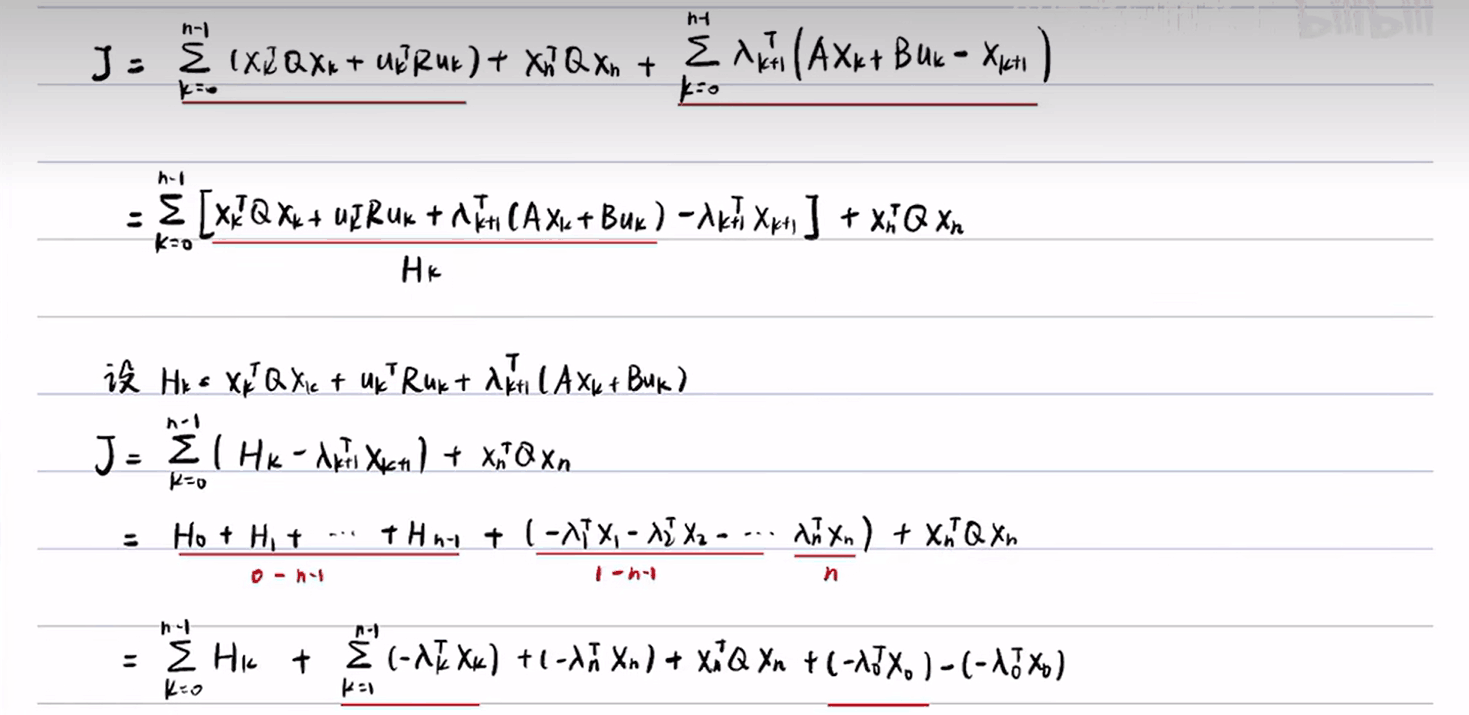 bilibili
J = Σ_{k=0}^{n-1} (x_k^T Q x_k + u_k^T R u_k) + x_n^T Q x_n + Σ_{k=0}^{n-1} λ_{k+1}^T (A x_k + B u_k - x_{k+1})
= Σ_{k=0}^{n-1} [x_k^T Q x_k + u_k^T R u_k + λ_{k+1}^T (A x_k + B u_k) - λ_{k+1}^T x_{k+1}] + x_n^T Q x_n
H_k
设 H_k = x_k^T Q x_k + u_k^T R u_k + λ_{k+1}^T (A x_k + B u_k)
J = Σ_{k=0}^{n-1} (H_k - λ_{k+1}^T x_{k+1}) + x_n^T Q x_n
= H_0 + H_1 + ... + H_{n-1} + (-λ_1^T x_1 - λ_2^T x_2 - ... λ_n^T x_n) + x_n^T Q x_n
0 - n-1 1 - n-1 n
= Σ_{k=0}^{n-1} H_k + Σ_{k=1}^{n-1} (-λ_k^T x_k) + (-λ_n^T x_n) + x_n^T Q x_n + (-λ_0^T x_0) - (-λ_0^T x_0)